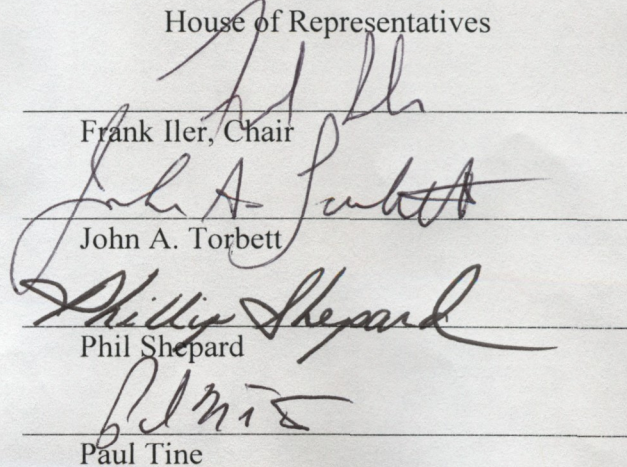 House of Representatives
Frank Iler, Chair
John A. Torbett
John A. Torbett
Phillip Shepard
Phil Shepard
Paul Tine